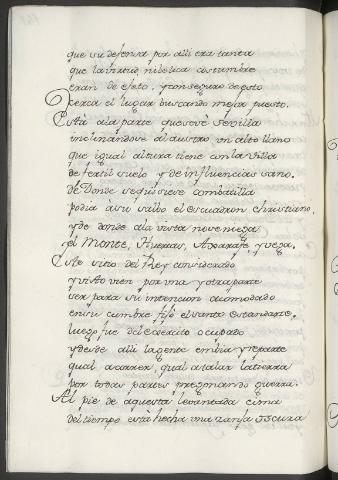 que su defensa por alli era tanta
que la virtud ni belica costumbre
eran de efeto, y con seguro de esto
Cerca el lugar buscando mejor puesto.
Está a la parte que se vé Sevilla
inclinandose al austro un alto llano
que igual altura tiene con la Villa
de fertil suelo y de influencias sano.
de Donde se quisiese combatilla
podia a su salbo el escuadron christiano,
y de donde a la vista no se niega
el Monte, Huertas, Axarafe, y vega.
Este sitio del Rey considerado
y visto vien por una y otra parte
ser para su intencion acomodado
en su cumbre fijó el santo estandarte,
luego fue del exercito ocupado
y desde alli la gente embia y reparte
qual a correr, qual a talar la tierra
por todas partes pregonando guerra.
Al pie de aquesta levantada cima
del tiempo está hecha una zanja oscura